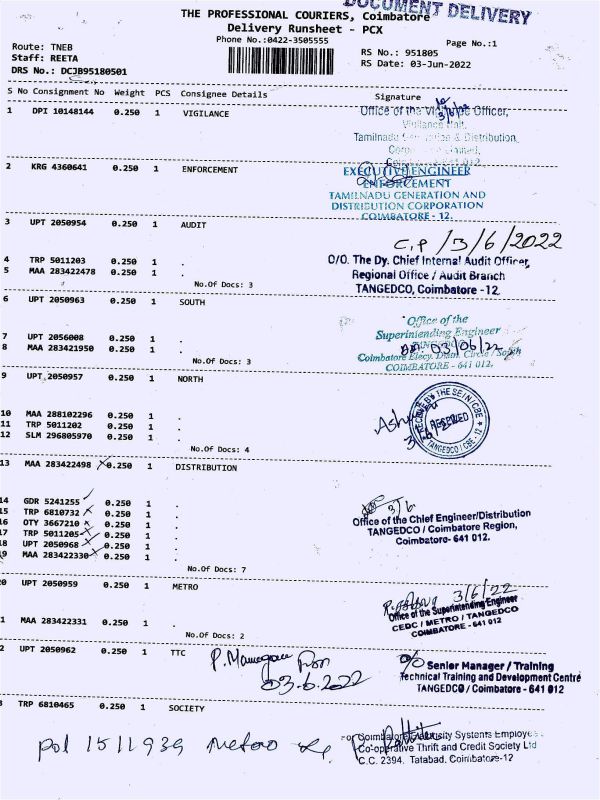 DOCUMENT DELIVERY
THE PROFESSIONAL COURIERS, Coimbatore
Delivery Runsheet - PCX
Phone No.:0422-3505555
Page No.:1
Route: TNEB
Staff: REETA
DRS No.: DCJB95180501
RS No.: 951805
RS Date: 03-Jun-2022
S No Consignment No Weight PCS Consignee Details Signature
1 DPI 10148144 0.250 1 VIGILANCE
Office of the Vigilance Officer,
Vigilance
Tamilnadu & Distribution
641 012
2 KRG 4360641 0.250 1 ENFORCEMENT
EXECUTIVE ENGINEER
ENFORCEMENT
TAMILNADU GENERATION AND
DISTRIBUTION CORPORATION
COIMBATORE - 12.
3 UPT 2050954 0.250 1 AUDIT
C.P /3/6/2022
4 TRP 5011203 0.250 1 .
5 MAA 283422478 0.250 1 .
No.Of Docs: 3
O/O. The Dy. Chief Internal Audit Officer,
Regional Office / Audit Branch
TANGEDCO, Coimbatore -12
6 UPT 2050963 0.250 1 SOUTH
Office of the
Superintending Engineer
03/06/22
Coimbatore Elecy. Distn. Circle / South
COIMBATORE - 641 012.
7 UPT 2056008 0.250 1 .
8 MAA 283421950 0.250 1 .
No.Of Docs: 3
9 UPT 2050957 0.250 1 NORTH
RECEIVED
TANGEDCO / CBE - 12
10 MAA 288102296 0.250 1 .
11 TRP 5011202 0.250 1 .
12 SLM 296805970 0.250 1 .
No.Of Docs: 4
13 MAA 283422498 0.250 1 DISTRIBUTION
14 GDR 5241255 0.250 1 .
15 TRP 6810732 0.250 1 .
16 OTY 3667210 0.250 1 .
17 TRP 5011205 0.250 1 .
18 UPT 2050968 0.250 1 .
19 MAA 283422330 0.250 1 .
No.Of Docs: 7
3/6
Office of the Chief Engineer/Distribution
TANGEDCO / Coimbatore Region,
Coimbatore- 641 012.
0 UPT 2050959 0.250 1 METRO
3/6/22
Office of the Superintending Engineer
CEDC / METRO / TANGEDCO
COIMBATORE - 641 012
1 MAA 283422331 0.250 1 .
No.Of Docs: 2
2 UPT 2050962 0.250 1 TTC
03.6.2022
O/o Senior Manager / Training
Technical Training and Development Centre
TANGEDCO / Coimbatore - 641 012
3 TRP 6810465 0.250 1 SOCIETY
pol 1511939 Metro
For Coimbatore Electricity Systems Employees
Co-operative Thrift and Credit Society Ltd
C.C. 2394, Tatabad, Coimbatore-12